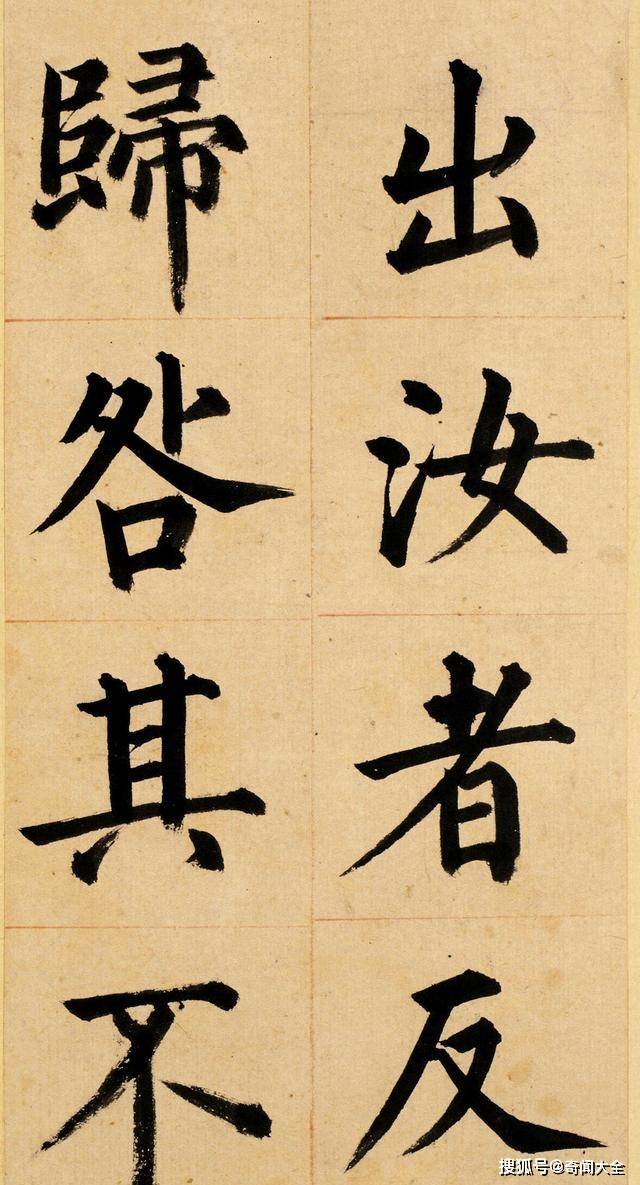 出汝者反
歸咎其不
搜狐号@奇闻大全